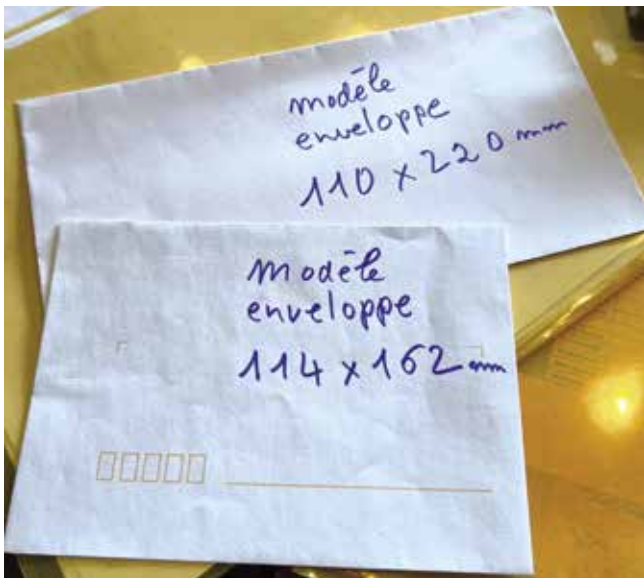 modèle
enveloppe
110 x 220 mm
modèle
enveloppe
114 x 162 mm